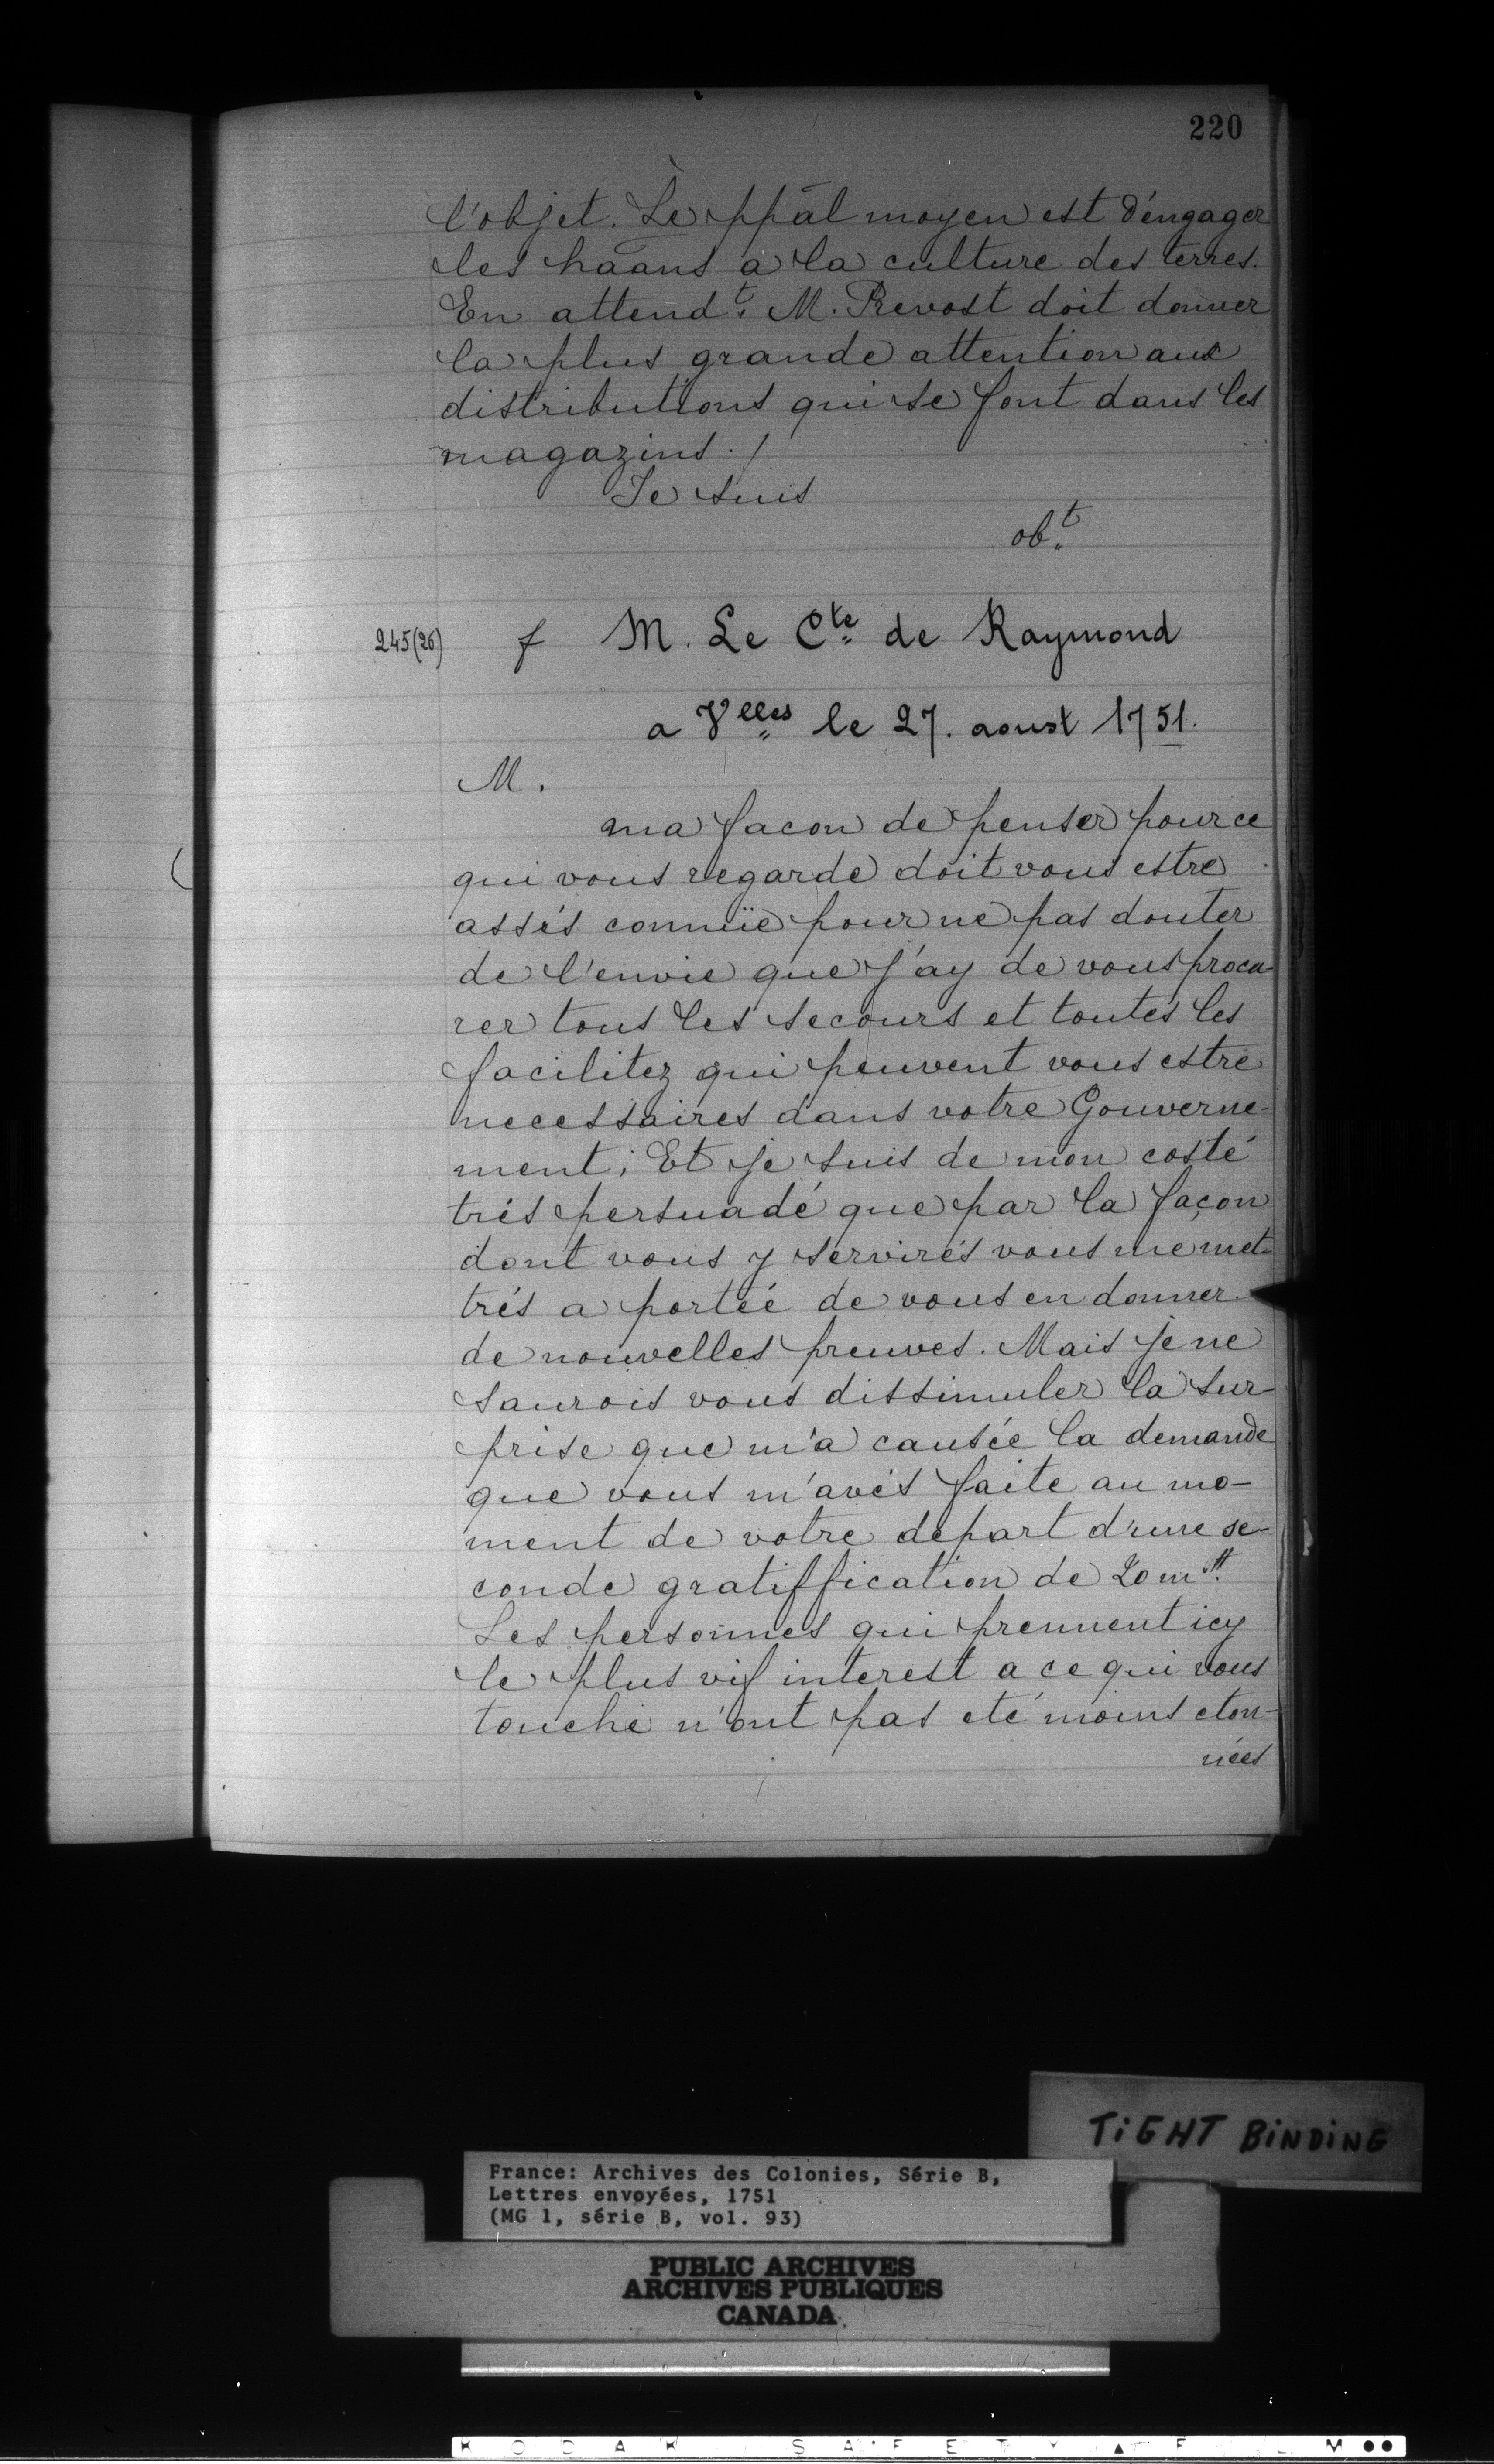 220
l'objet. Le ppāl moyen est d'engager
les haans a la culture des terres.
En attendt. M. Prevost doit donner
la plus grande attention aux
distributions qui se font dans les
magazins./
Je suis
obt.
245(26) f M. Le Cte de Raymond
a Velles le 27. aoust 1751.
M.
ma facon de penser pour ce
qui vous regarde doit vous estre
assés connüe pour ne pas douter
de l'envie que j'ay de vous procu-
rer tous les secours et toutes les
facilitez qui peuvent vous estre
necessaires dans votre Gouverne-
ment; Et je suis de mon costé
trés persuadé que par la façon
dont vous y servirés vous me met-
trés a portée de vous en donner
de nouvelles preuves. Mais je ne
saurois vous dissimuler la sur-
prise que m'a causée la demande
que vous m'avés faite au mo-
ment de votre depart d'une se-
conde gratiffication de 20 m tt.
Les personnes qui prennent icy
le plus vif interest a ce qui vous
touche n'ont pas eté moins eton-
nées
TIGHT BINDING
France: Archives des Colonies, Série B,
Lettres envoyées, 1751
(MG 1, série B, vol. 93)
PUBLIC ARCHIVES
ARCHIVES PUBLIQUES
CANADA
KODAK SAFETY ▲ FILM ●●